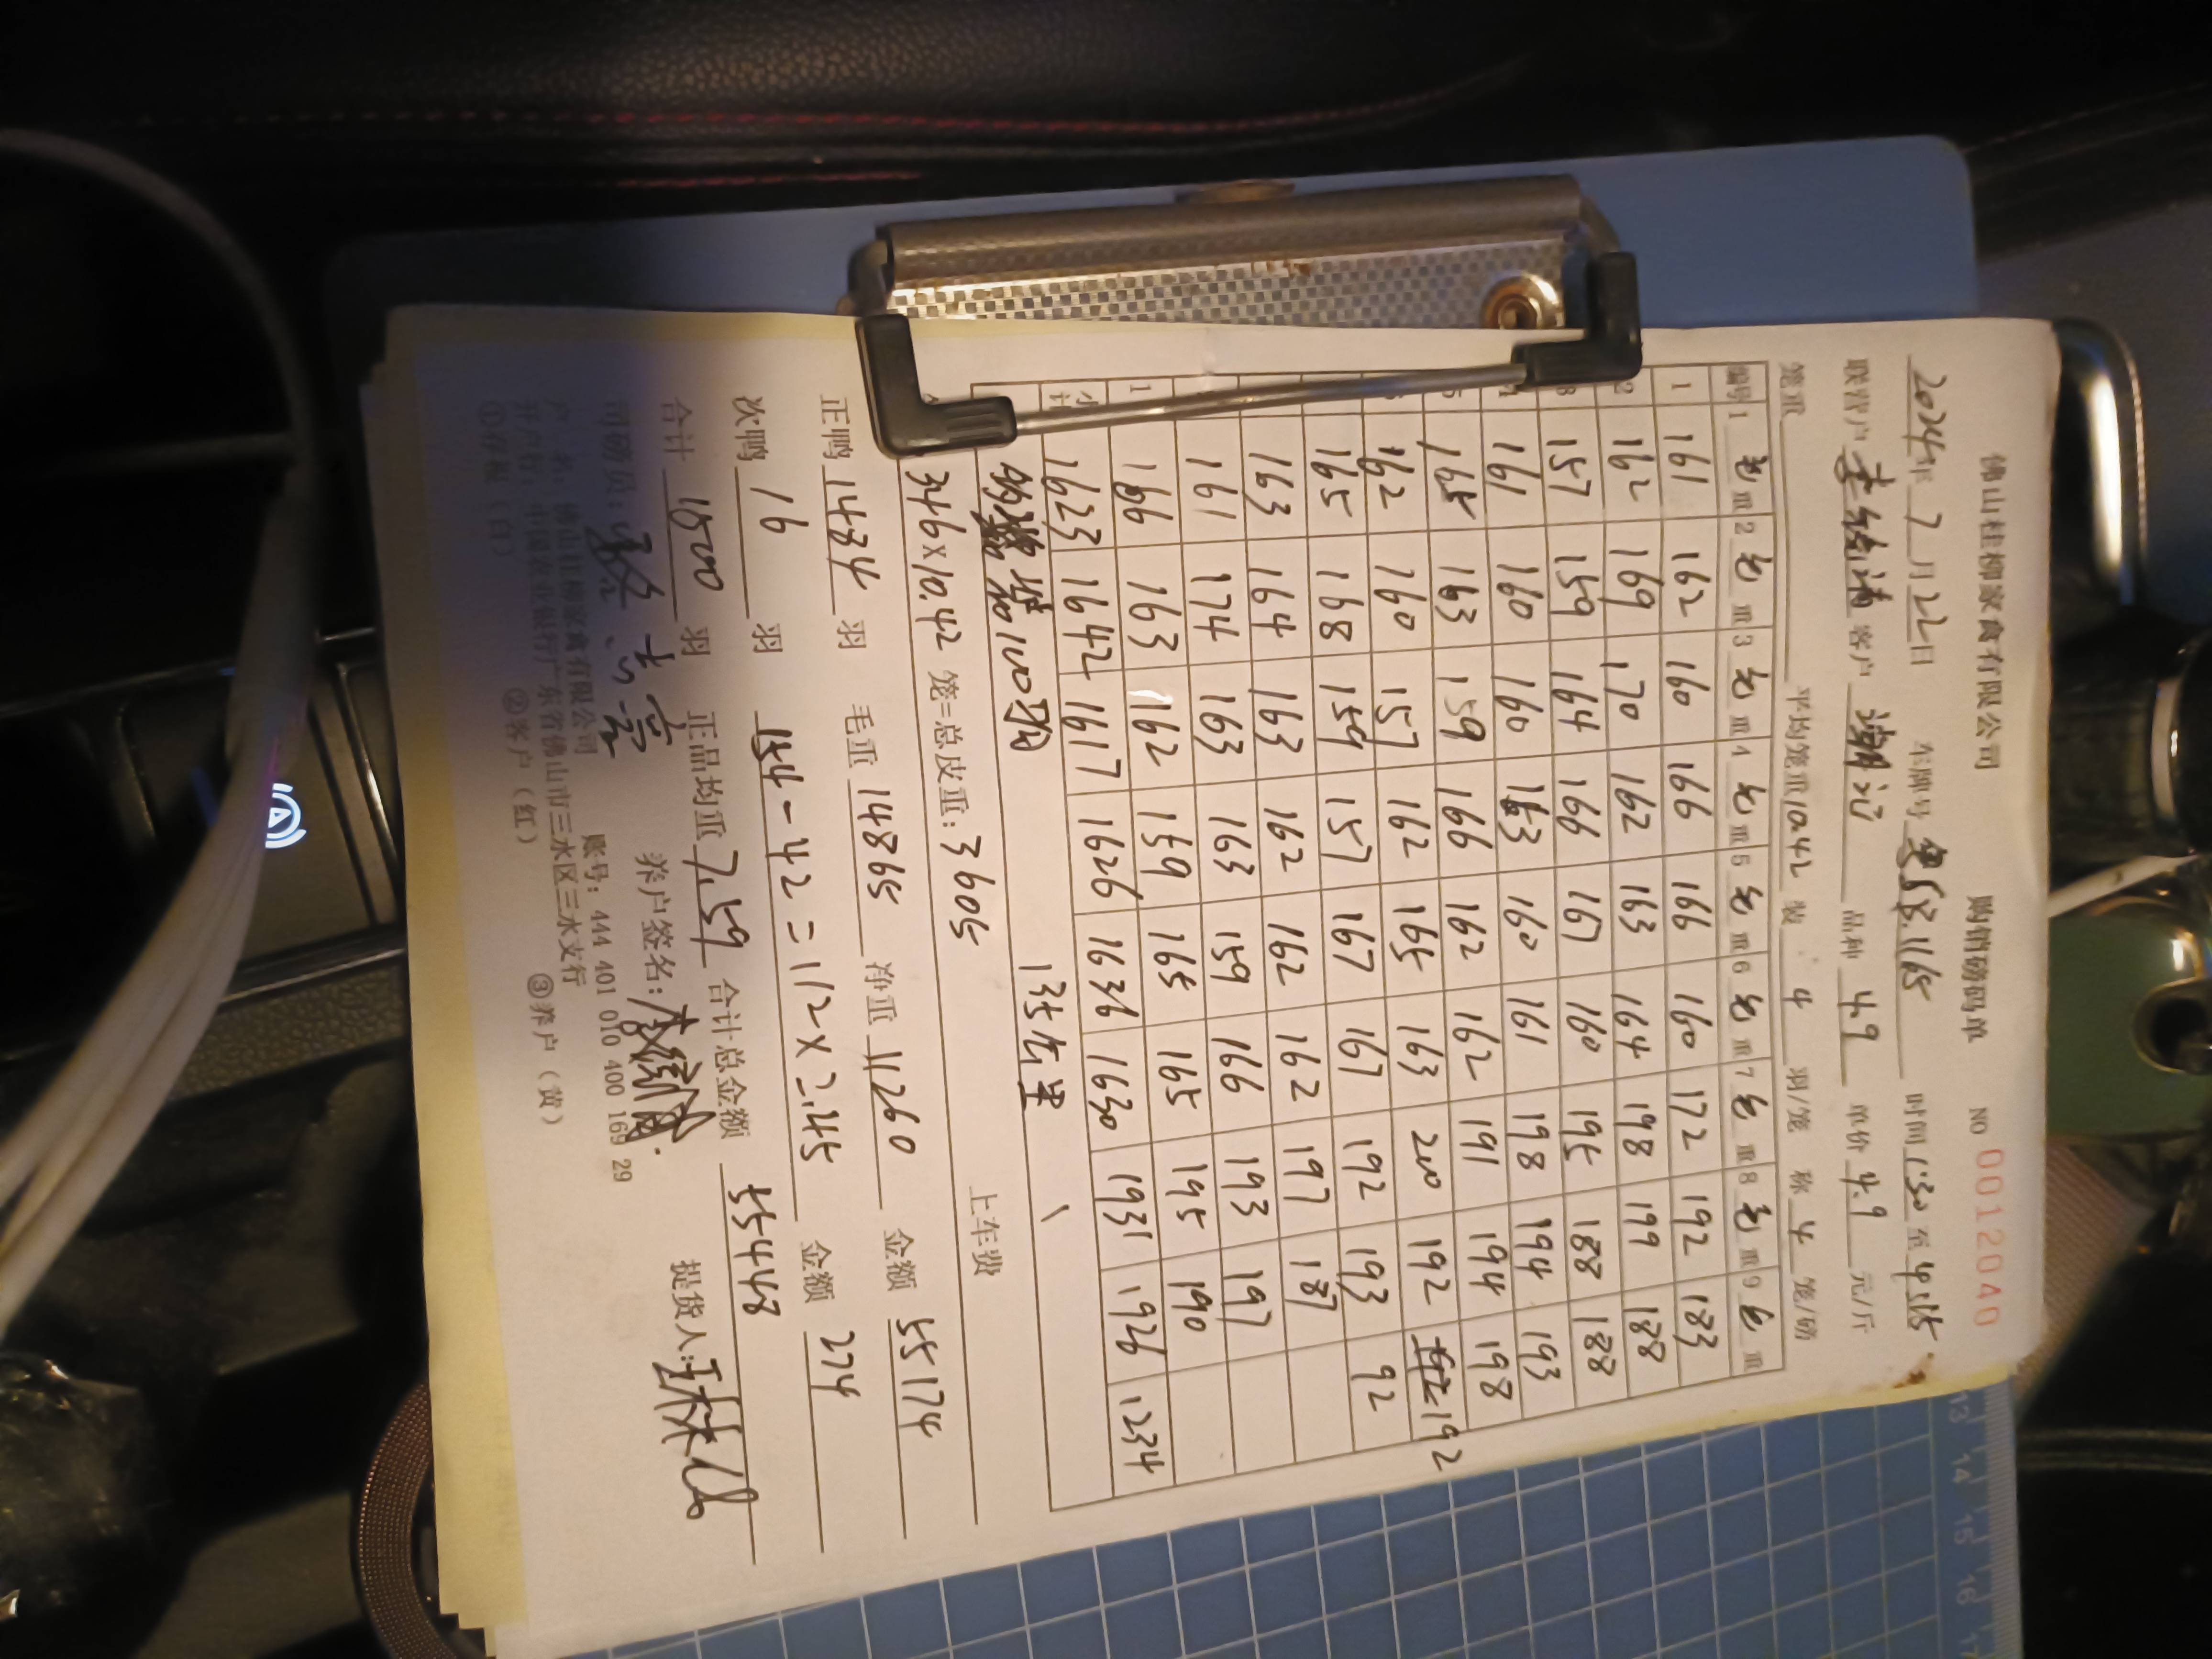 佛山桂柳家禽有限公司 购销磅码单 NO 0012040
2024年 7月22日 车牌号 1165 时间 1:30 至 4:15
联营户 客户 品种 49 单价 4.9 元/斤
笼重 平均笼重 10.42 装 4 羽/笼 称 4 笼/磅
编号 1 毛重 2 毛重 3 毛重 4 毛重 5 毛重 6 毛重 7 毛重 8 毛重 9 毛重
1 161 162 160 166 166 160 172 192 183
2 162 169 170 162 163 164 198 199 188
3 157 159 164 166 167 160 195 188 188
161 160 160 163 160 161 198 194 193
165 163 159 166 162 162 191 194 198
162 160 157 162 165 163 200 192 192
165 168 159 157 167 167 192 193 92
163 164 163 162 162 162 197 187
161 174 163 163 159 166 193 197
1 166 163 162 159 165 165 195 190
小计 1623 1642 1617 1626 1636 1630 1931 1926 1234
100
上车费
346×10.42 笼=总皮重: 3605
正鸭 1484 羽 毛重 14865 净重 11260 金额 55174
次鸭 16 羽 154-42=112×2.45 金额 274
合计 1500 羽 正品均重 7.59 合计总金额 55448
司磅员: 养户签名: 提货人:
户 名: 佛山桂柳家禽有限公司 账号: 444 401 010 400 169 29
开户行: 中国农业银行广东省佛山市三水区三水支行
①存根(白) ②客户(红) ③养户(黄)
13 14 15 16 17